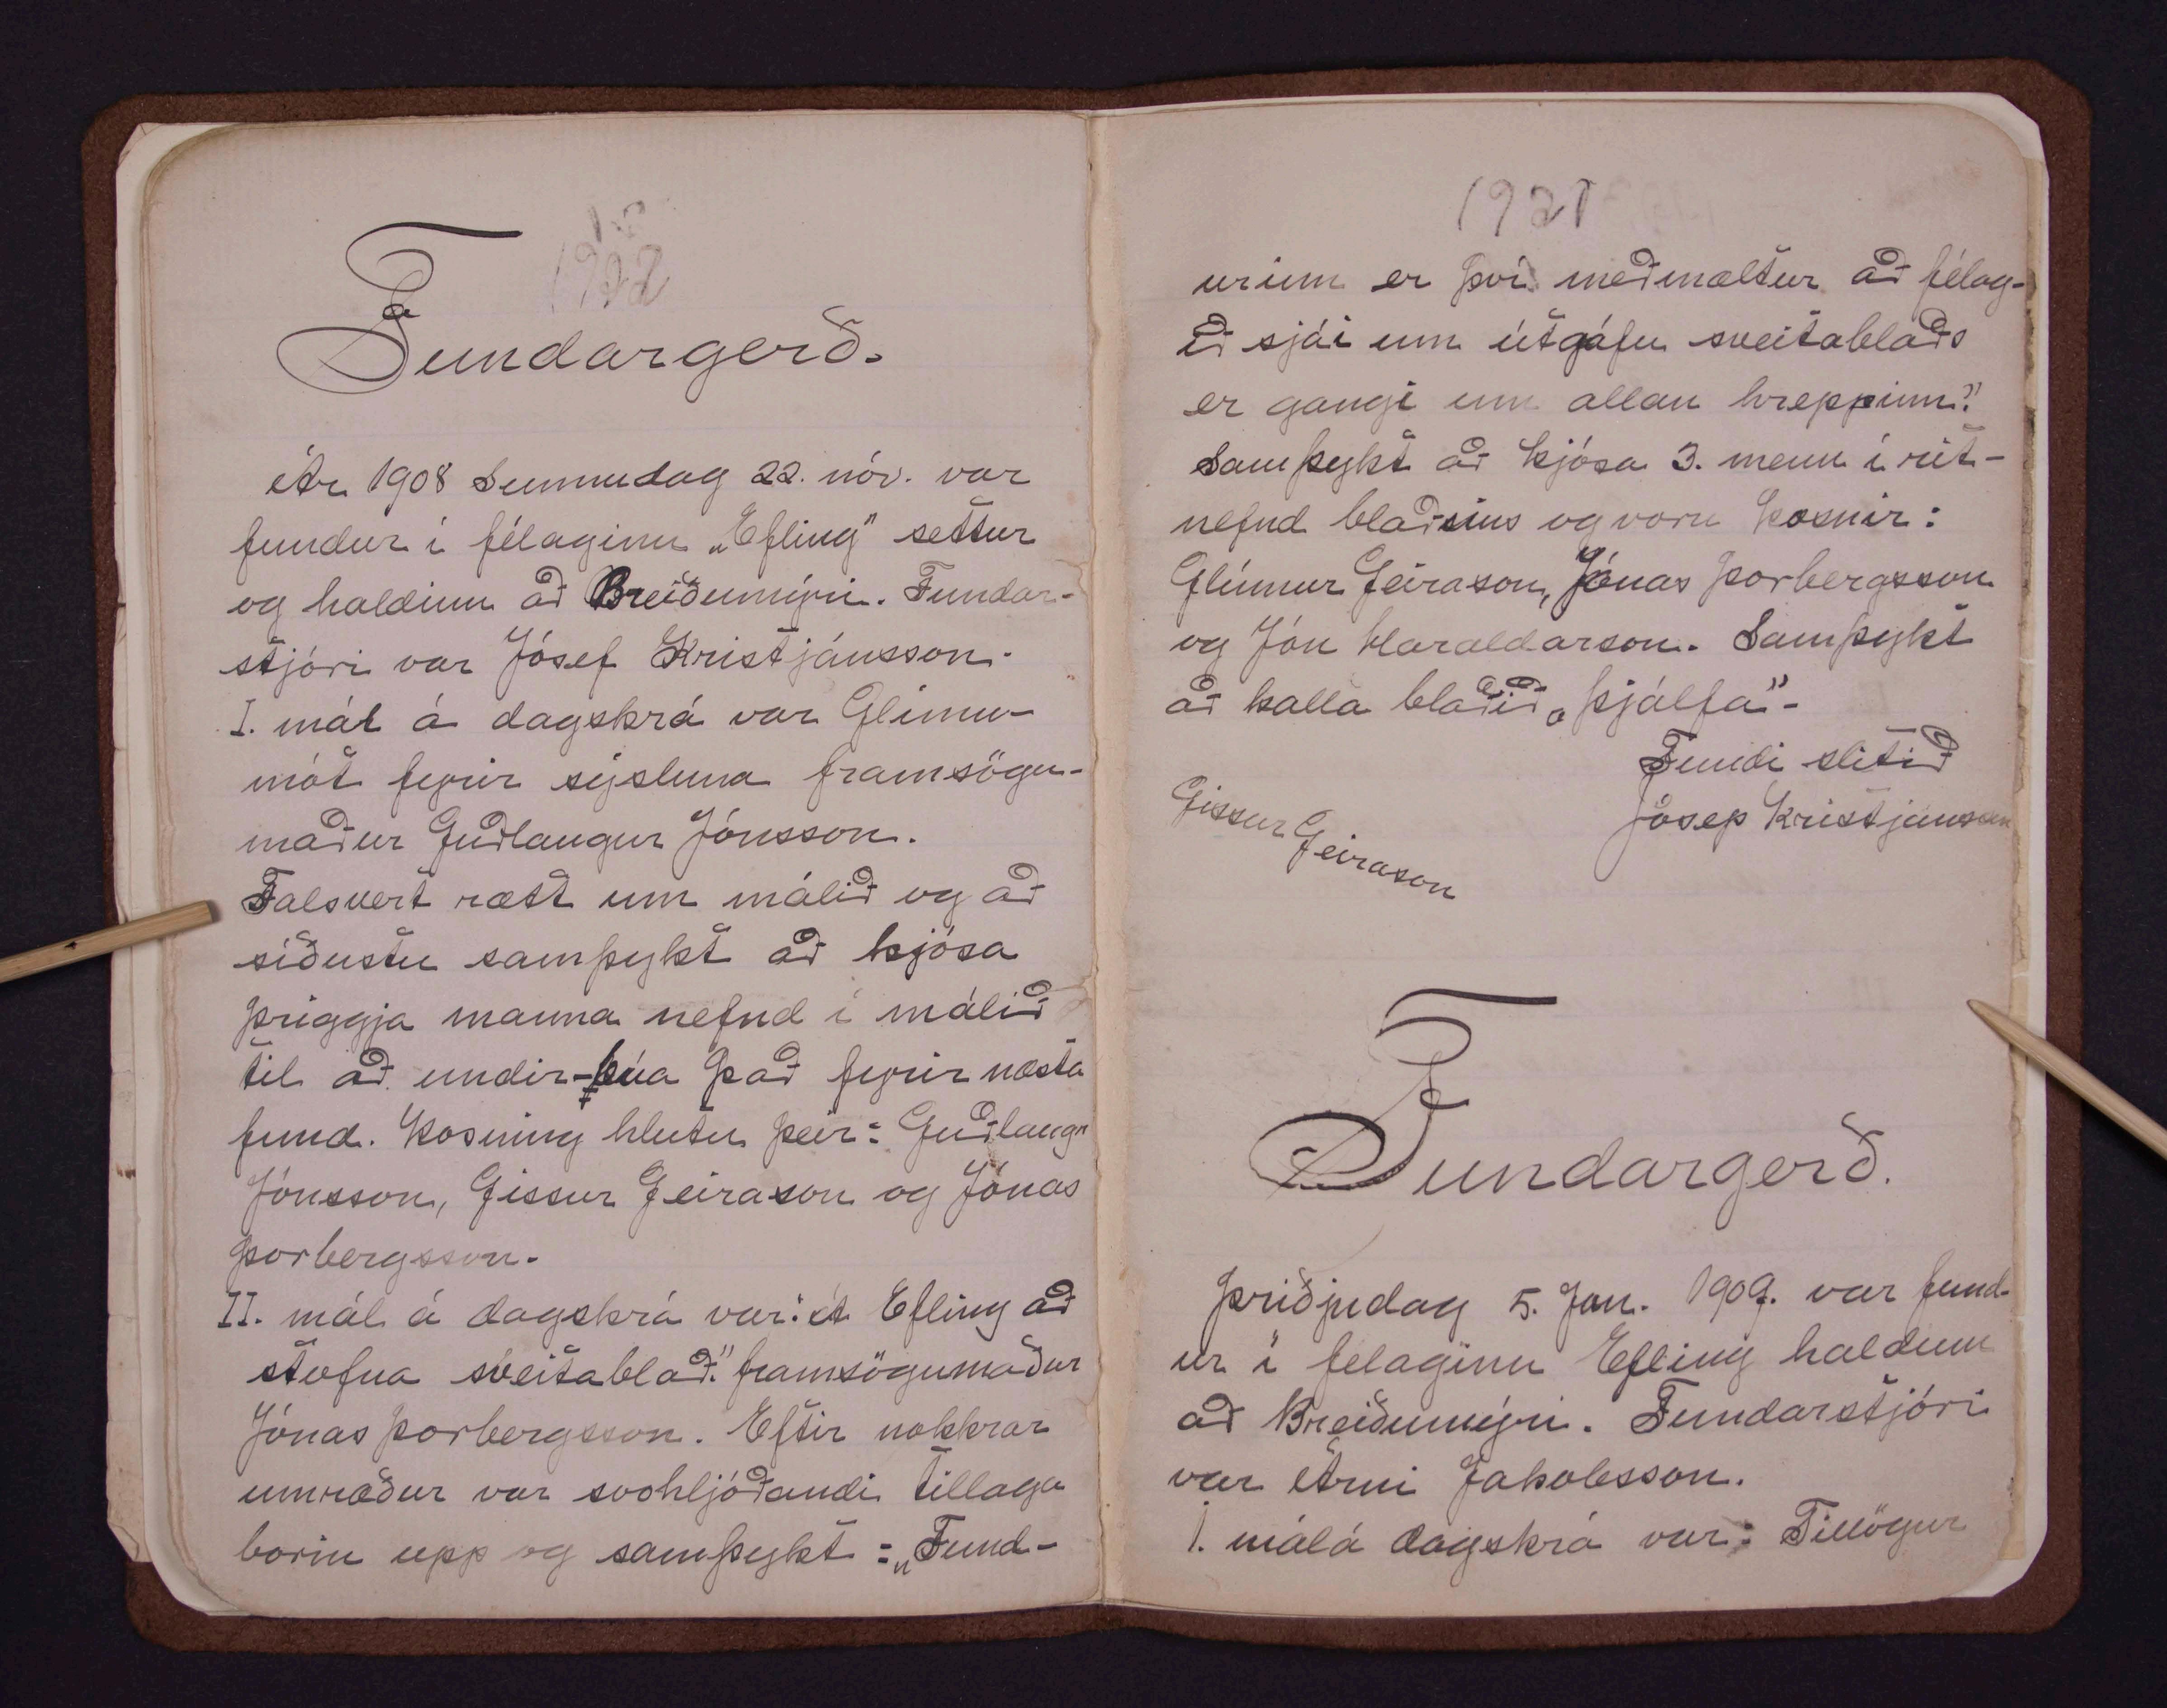 1922
Fundargerð.
Ár 1908 Sunnudag 22. nóv. var
fundur í félaginu „Efling" settur
og haldinn að Breiðumýri. Fundar-
stjóri var Jósef Kristjánsson.
I. mál á dagskrá var Glímu-
mót fyrir sýsluna framsögu-
maður Guðlaugur Jónsson.
Talsvert rætt um málið og að
síðustu samþykt að kjósa
þriggja manna nefnd í málið
til að undir-búa það fyrir næsta
fund. Kosning hlutu þeir: Guðlaugr
Jónsson, Gissur Geirason og Jónas
Þorbergsson.
II. mál á dagskrá var: á Efling að
stofna sveitablað." framsögumaður
Jónas Þorbergsson. Eftir nokkrar
umræður var svohljóðandi tillaga
borin upp og samþykt: „Fund-
1921
urinn er því meðmæltur að félag-
ið sjái um útgáfu sveitablaðs
er gangi um allan hreppinn."
Samþykt að kjósa 3. menn í rit-
nefnd blaðsins og voru kosnir:
Glúmur Geirason, Jónas Þorbergsson
og Jón Haraldarson. Samþykt
að kalla blaðið „Þjálfa"-
Fundi slitið
Jósep Kristjánsson
Gissur Geirason
Fundargerð.
Þriðjudag 5. Jan. 1909. var fund-
ur í felaginu Efling haldinn
að Breiðumýri. Fundarstjóri
var Árni Jakobsson.
1. mál á dagskrá var: Tillögur